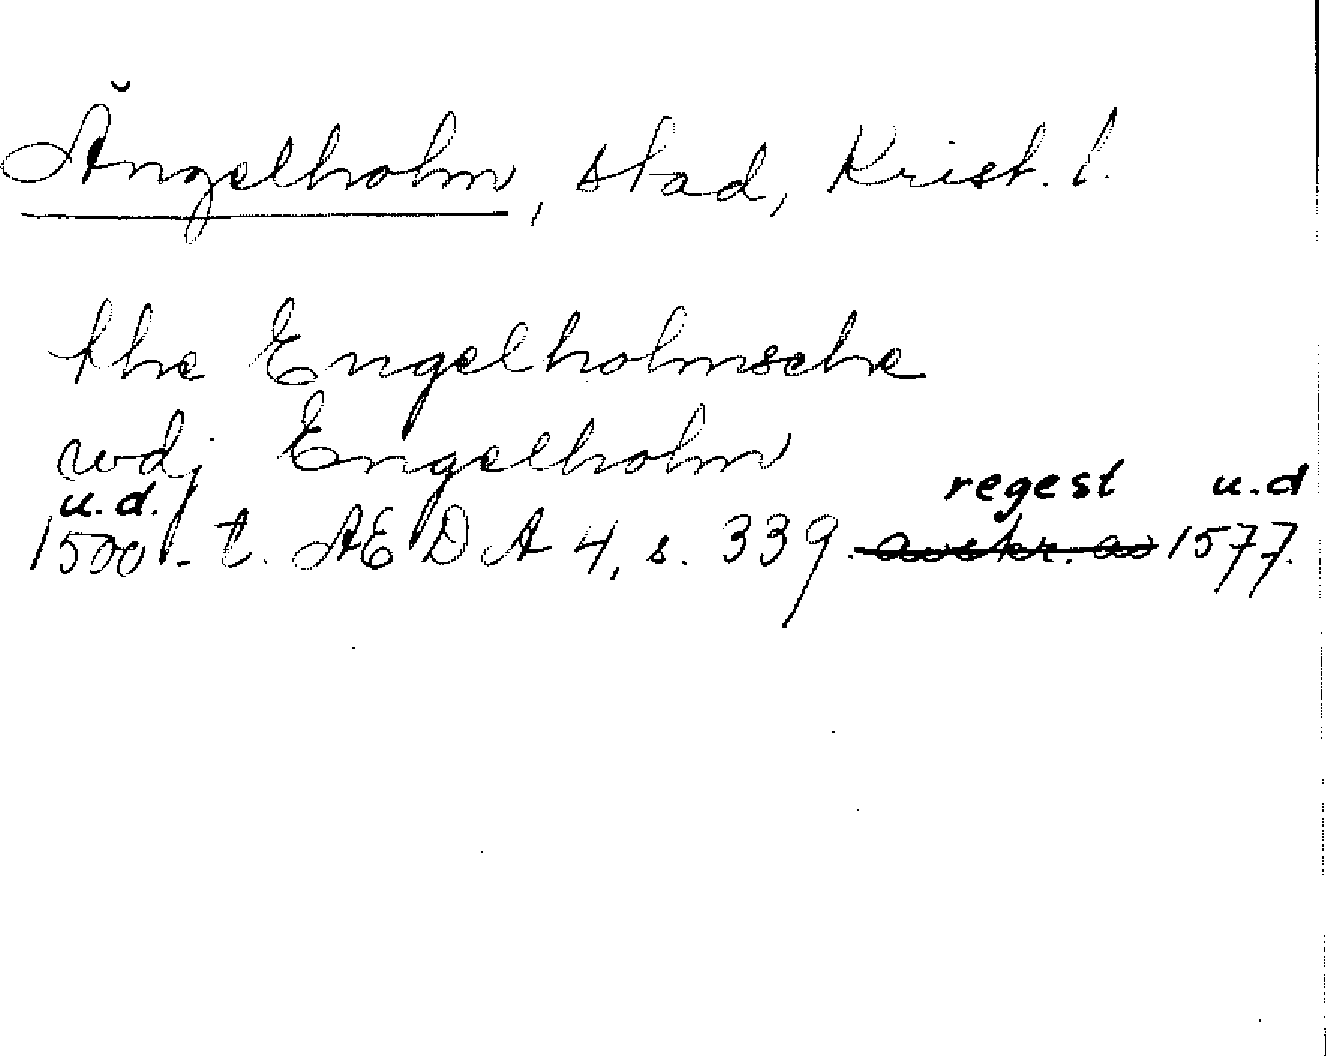 Ängelholm, stad, Krist. l.
the Engelholmsche
wdj Engelholm
u.d. regest u.d
1500-t. AEDA 4, s. 339. avskr. av 1577.